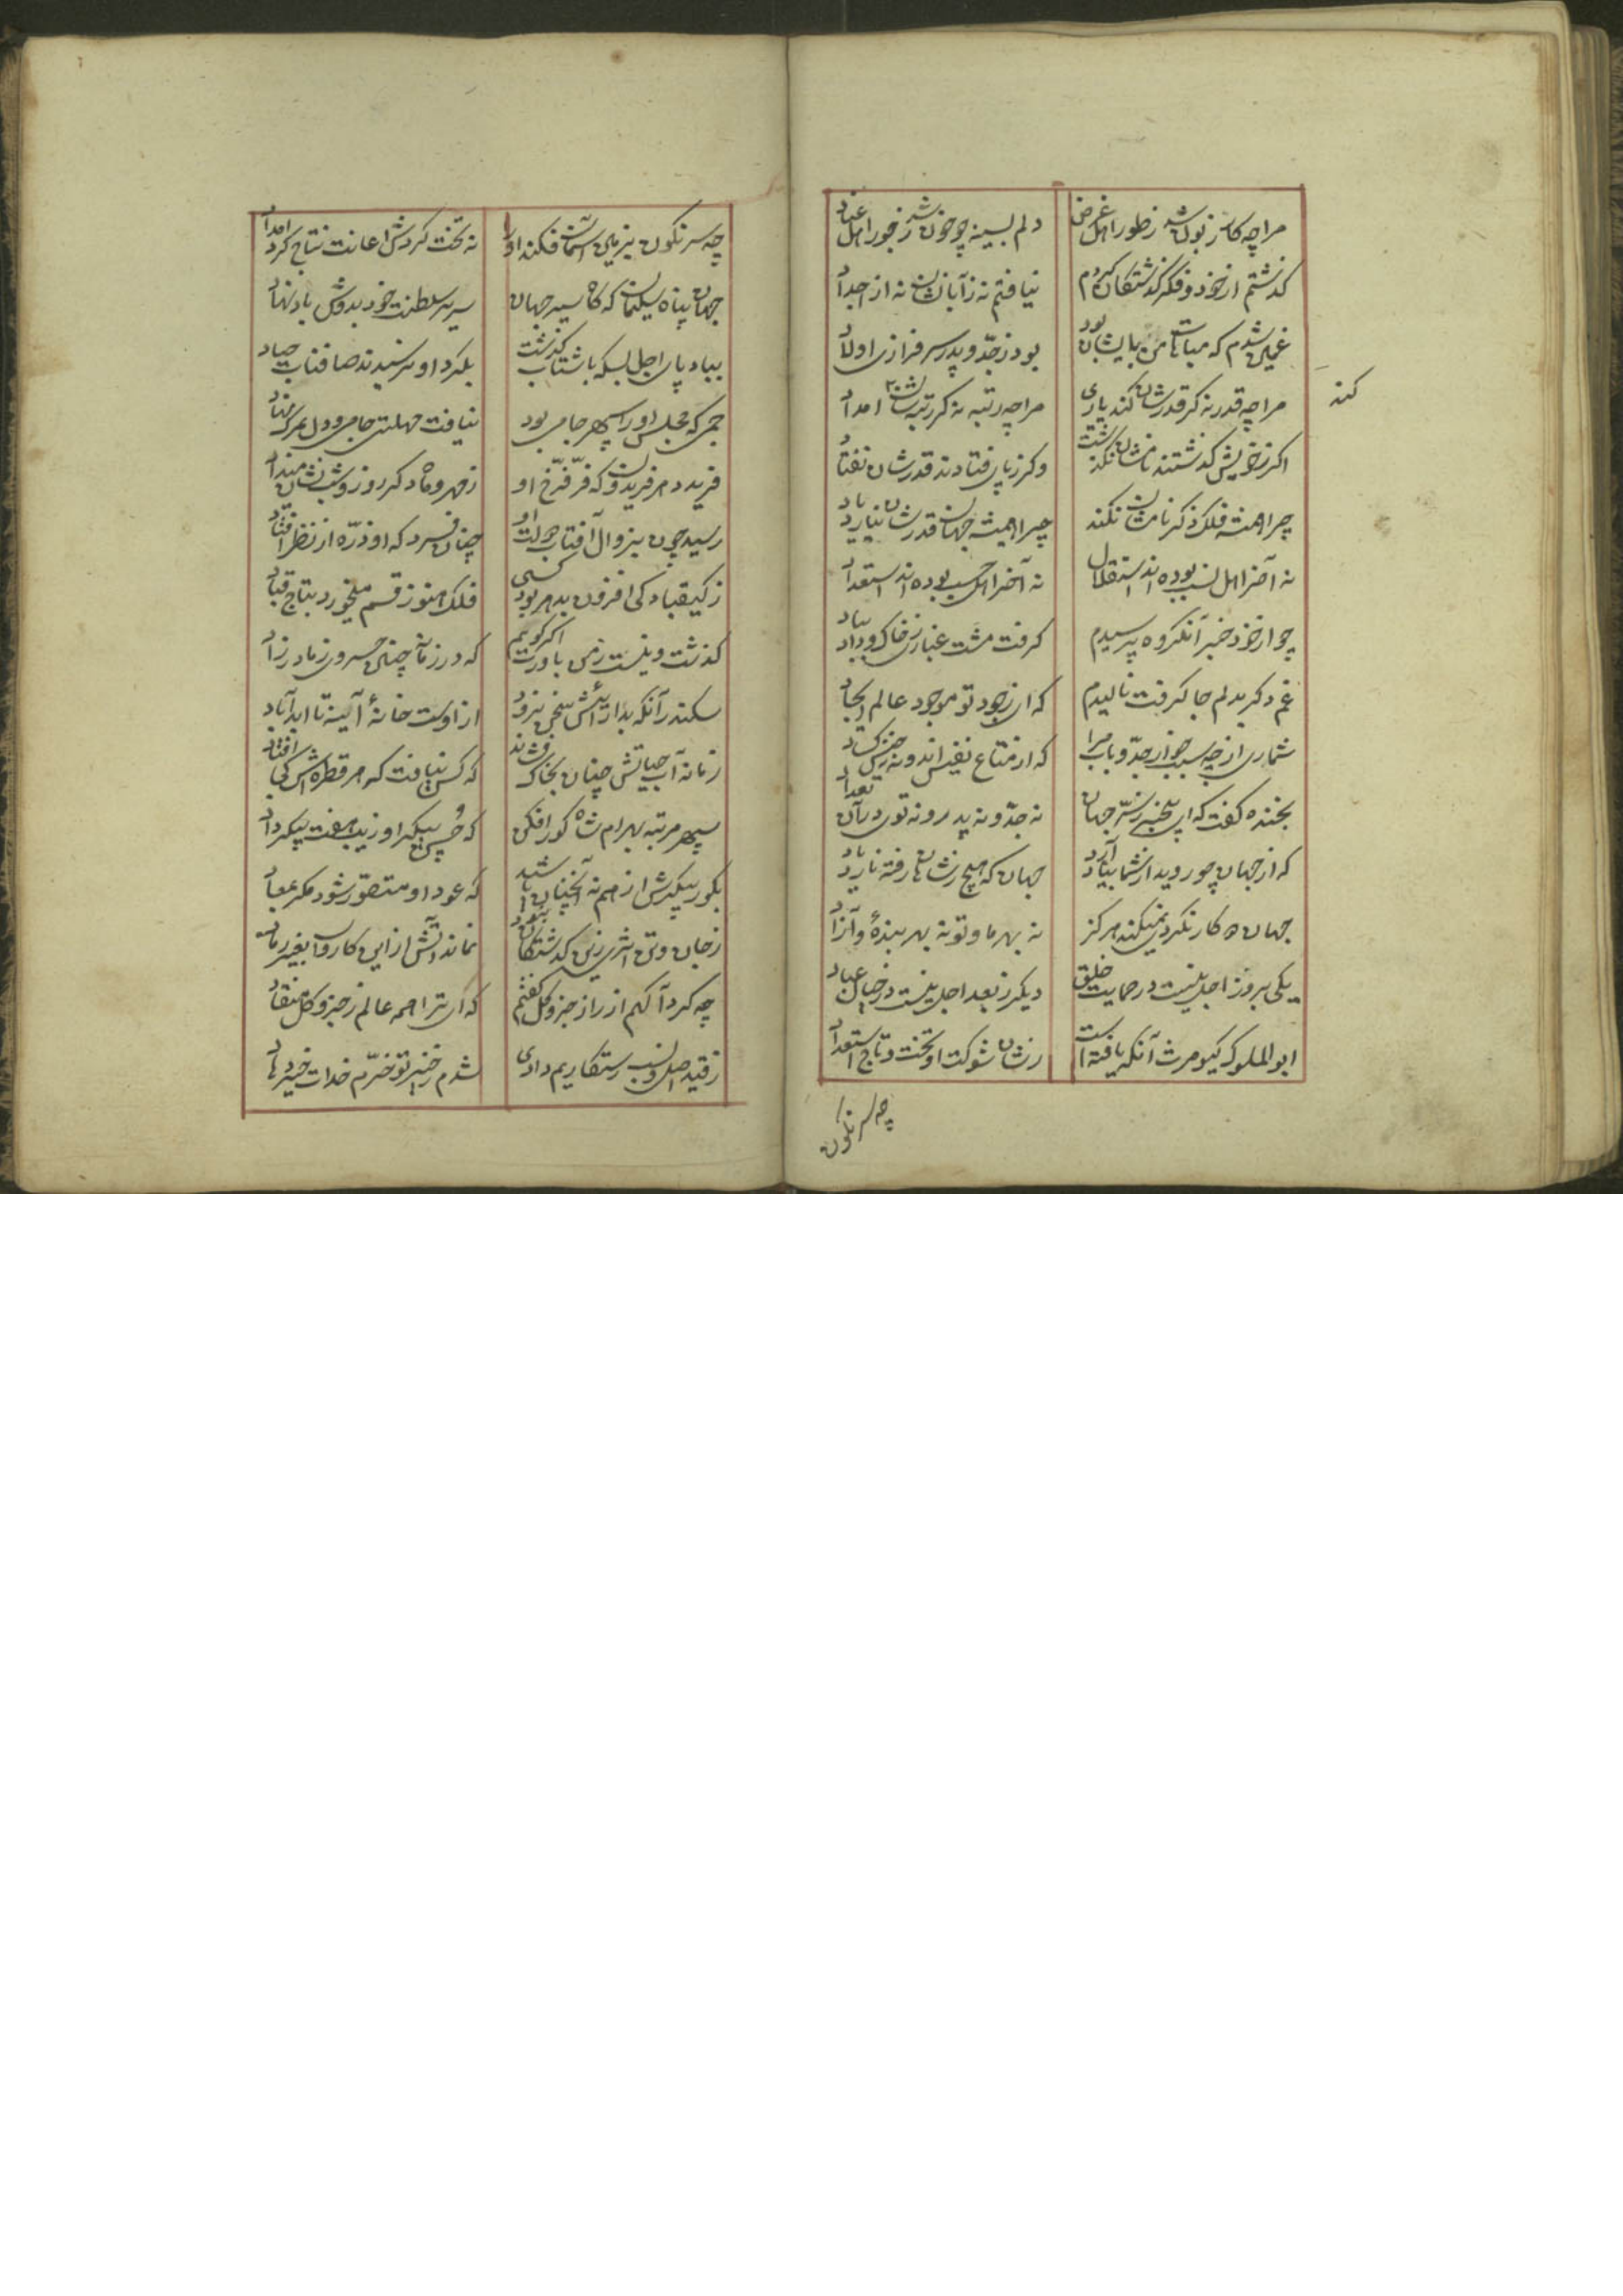 مرا چه کار زبون شد ز طور اهل غرض دلم بسینه چو خون شد ز جور اهل عناد
کذشتم از خود و فکر کذشتکان کردم نیافتم نه ز آبا نشان نه از اجداد
غمین شدم که مباهات من بایشان بود بود ز جدّ و پدر سرفرازی اولاد
مرا چه قدر نه کر قدرشان کند یاری مرا چه رتبه نه کر رتبه شان امداد
کند
اکر ز خویش کذشتند نامشان نکذشت وکر ز پای فتادند قدرشان نفتاد
چرا همیشه فلک ذکر نامشان نکند چرا همیشه جهان قدرشان نیارد یاد
نه آخر اهل نسب بوده اند استقلال نه آخر اهل حسب بوده اند استعداد
چو از خود خبر آنکروه پرسیدم کرفت مشت غباری ز خاک و داد بباد
غم دکر بدلم جا کرفت نالیدم که ای ز جود تو موجود عالم ایجاد
شماری از چه سبب جد و باب مرا که از متاع نفیس اند و نه جنس کساد
بخنده کفت که ای بیخبر ز سرّ جهان نه جدّ و نه پدر و نه توی در آن تعداد
که از جهان چو روید از شما بیاد آرد جهان که هیچ ز شاهان رفته نارد یاد
جهان کار نکرد نمیکند هرکز نه بهر ما و تو نه بهر بنده و آزاد
یکی بروز اجل نیست در حمایت خلق دیکر ز بعد اجل نیست در خیال عباد
ابو الملوک کیومرث آنکه یافته است ز شان شوکت او تخت و تاج استعداد
چه سرنکون
چه سرنکون بزمین آسمان فکند او را نه تخت کردش اعانت نتاج کرد امداد
جهان پناه سلیمان که کاه سیر جهان سریر سلطنت خود بدوش باد نهاد
بباد پای اجل بسکه باشتاب کذشت بکرد او نرسیدند صافنات جیاد
جمی که مجلس او را سپهر جامی بود نیافت مهلت جامی و دل بمرک نهاد
فرید دهر فریدون که فرّ فرّخ او ز مهر و ماه دکر روز و شب نشان میداد
رسید چون بزوال آفتاب دولت او چنان فسرد که او ذرّه از نظر افتاد
ز کیقباد کی افزون بدهر بود کسی فلک هنوز قسم میخورد بتاج قباد
کذشت و نیست زمن باورت اکر کویم که در زمانه چنین خسروی ز مادر زاد
سکندر آنکه بدارائیش سخن نبرد از اوست خانهٔ آیینه تا ابد آباد
زمانه آب حیاتش چنان بخاک فشاند که کس نیافت که هر قطره اش کجا افتاد
سپهر مرتبه بهرام شاه کور افکن که حسن پیکر او زیب هفت پیکر داد
بکور پیکرش از هم نه آنچنان پاشید که عود او متصوّر شود مکر بمعاد
ز جان و تن اثری زین کذشتکان نبود نماند آتش از این کاروان بغیر رماد
چه کرد آکهم از راز جزو و کل کفتم که ای ترا همه عالم ز جزو و کل منقاد
ز قید اصل و نسب رستکاریم دادی شدم ز خیر تو خرّم خدات خیر دهاد